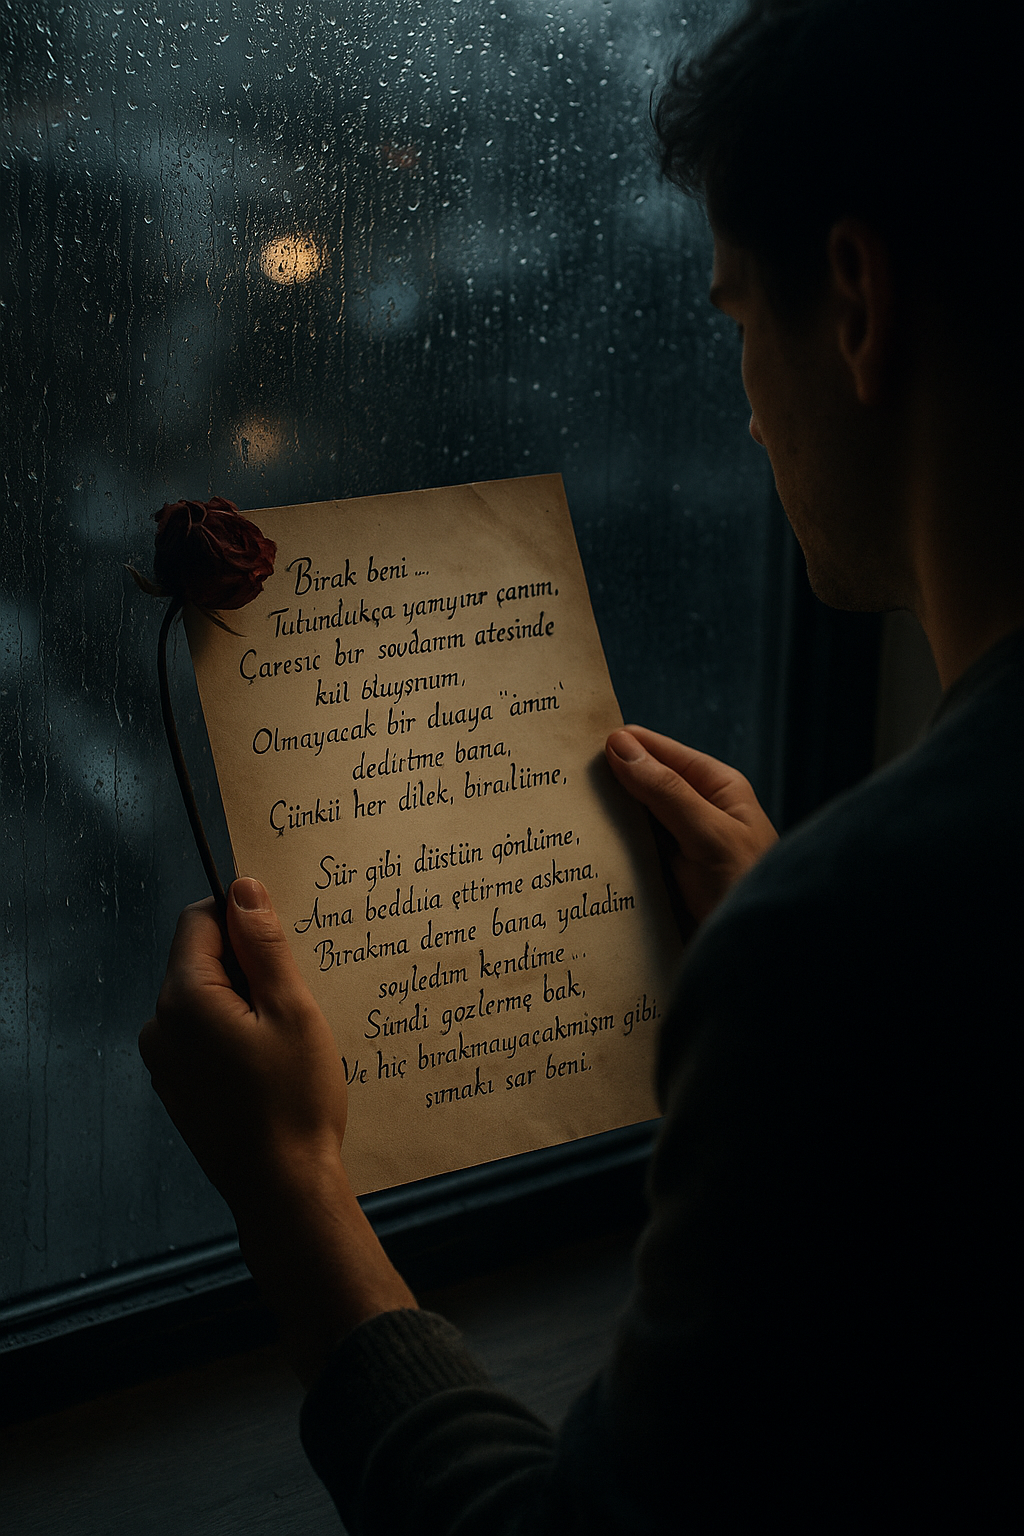 Birak beni ...
Tutundukça yamyınr çanım,
Çaresıc bır sovdarım atesinde
kül bluyşnum,
Olmayacak bir duaya "âmın"
dedirtme bana,
Çünkii her dilek, biraliime,
Şiir gibi düstün gônlüme,
Ama beddua ettirme askına.
Bırakma derne bana, yaladim
soyledım kendime ...
Sündi gozlerme bak,
Ve hiç bırakmayaçakmişm gibi.
sımakı sar beni.